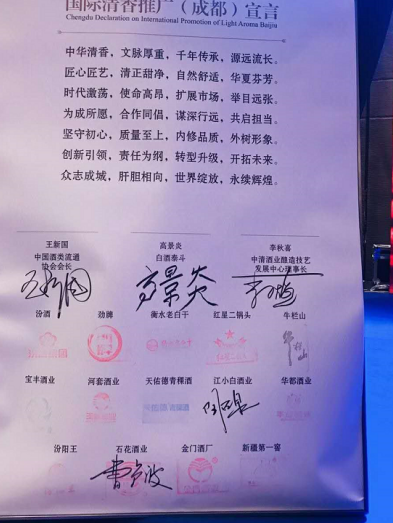 国际清香推广（成都）宣言
Chengdu Declaration on International Promotion of Light Aroma Baijiu
中华清香，文脉厚重，千年传承，源远流长。
匠心匠艺，清正甜净，自然舒适，华夏芬芳。
时代激荡，使命高昂，扩展市场，举目远张。
为成所愿，合作同倡，谋深行远，共启担当。
坚守初心，质量至上，内修品质，外树形象。
创新引领，责任为纲，转型升级，开拓未来。
众志成城，肝胆相向，世界绽放，永续辉煌。
王新国 高景炎 李秋喜
中国酒类流通 白酒泰斗 中清酒业酿造技艺
协会会长 发展中心理事长
高景炎
汾酒 劲牌 衡水老白干 红星二锅头 牛栏山
宝丰酒业 河套酒业 天佑德青稞酒 江小白酒业 华都酒业
汾阳王 石花酒业 金门酒厂 新疆第一窖